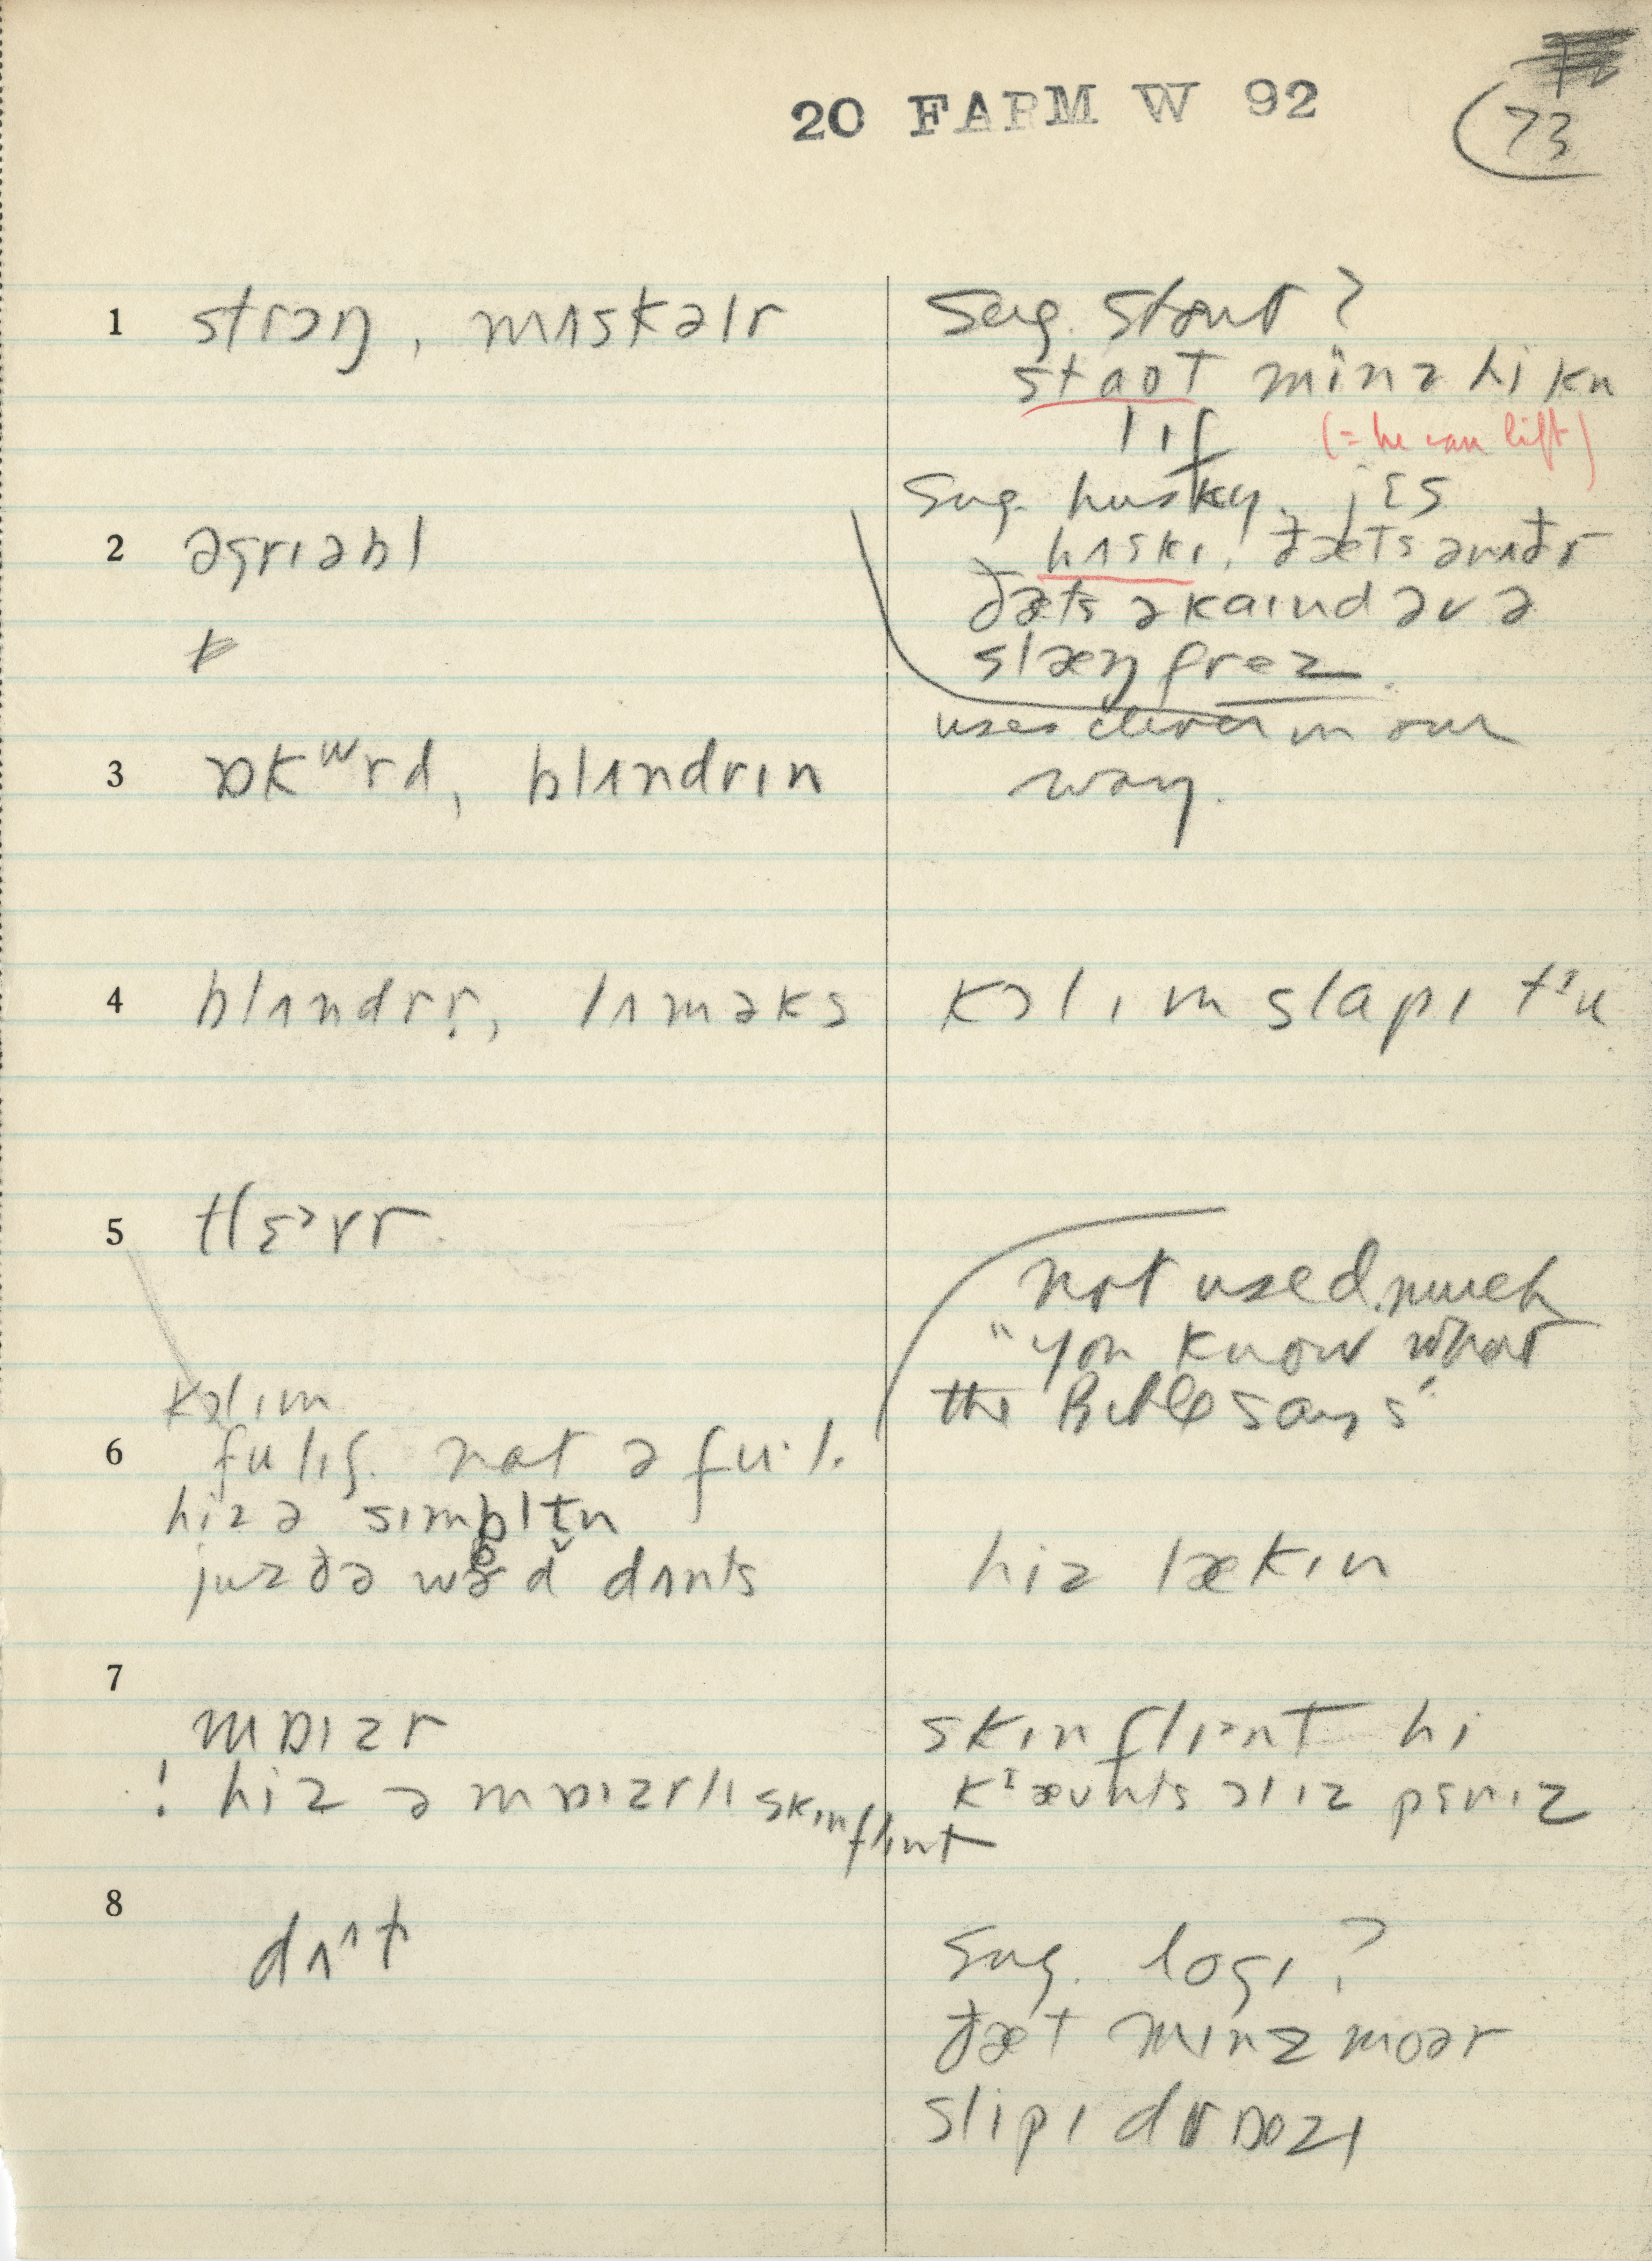 20 FARM W 92
73
1 strɔŋ, mʌskəlr
sug. stout?
staot mïnz hi kn
lɪf
(= he can lift)
sug. husky. jɛs
hʌskɪ, ðæts ənʌðr
ðæts ə kaɪnd əv ə
slæŋ frez.
2 əgrɪəbl
uses clever in our
way.
3 ɒkʷrd, blʌndrɪn
4 blʌndrr̩, lʌməks
kɔl ɪm slapɪ tᶦu
5 tlɛᵊvr
not used much
"you know what
the Bible says"
kɔl ɪm
6 fulɪʃ. nat ə fu·l.
hiz ə sɪmpltn
juz ðə wɚd dʌnts
hiz lækɪn
7
mɒɪzr
! hiz ə mɒɪzrlɪ skɪnflɪnt
skɪnflɪᵊnt hi
kᶦævnts ɔl ɪz pɛnɪz
8
dʌ^t
sug. logɪ?
ðæt mɪnz moər
slipɪ drɒʊzɪ